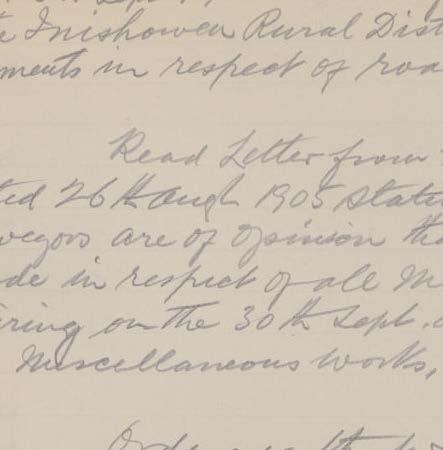 Sept.
Inishowen Rural Dist
ments in respect of roa
Read Letter from
ted 26th Augt 1905 State
veyors are of opinion tha
de in respect of all M
iring on the 30th Sept.
Miscellaneous Works,